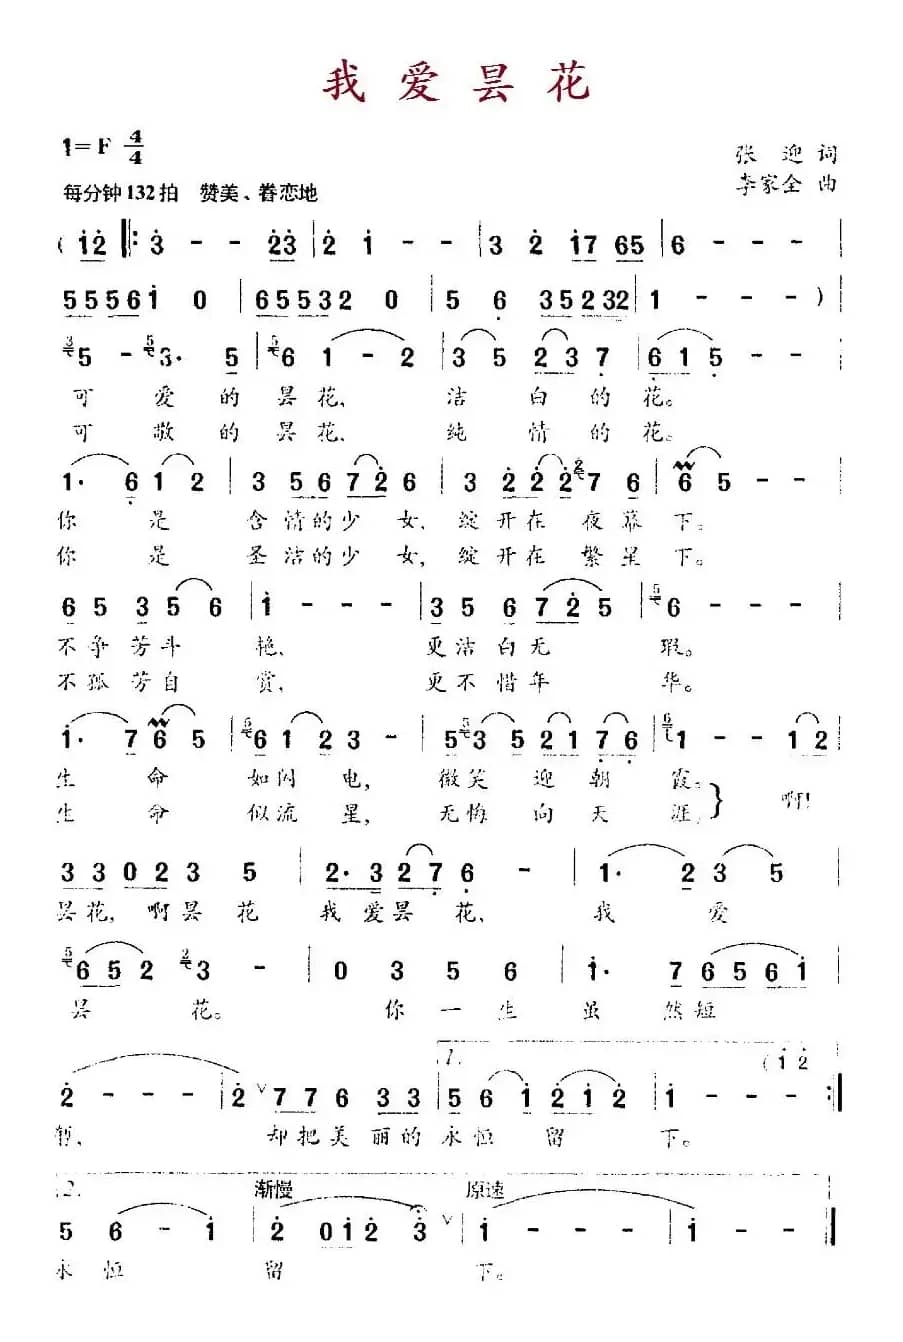 我爱昙花
1=F 4/4
张 迎 词
每分钟132拍 赞美、眷恋地
李家全 曲
( i̇ 2̇ ‖: 3̇ - - 2̇3̇ | 2̇ i̇ - - | 3 2̇ i̇7 65 | 6 - - - |
5556i̇ 0 | 65532 0 | 5 6̣ 352532 | 1 - - - ) |
5 - 3· 5 | 6 1 - 2 | 3 5 2 3 7̣ | 6̣ 1 5̣ - - |
可 爱 的 昙 花、 洁 白 的 花。
可 敬 的 昙 花、 纯 情 的 花。
1· 6̣ 1 2 | 3 5 6 7 2̇ 6 | 3 2̇ 2̇ 2̇ 7 6 | 6 5 - - |
你 是 含 情 的 少 女、 绽 开 在 夜 幕 下。
你 是 圣 洁 的 少 女, 绽 开 在 繁 星 下。
6 5 3 5 6 | i̇ - - - | 3 5 6 7 2̇ 5 | 6 - - - |
不 争 芳 斗 艳、 更 洁 白 无 瑕。
不 孤 芳 自 赏, 更 不 惜 年 华。
i̇· 7 6 5 | 6 1 2 3 - | 5 3 5 2 1 7̣ 6̣ | 1 - - 1 2 |
生 命 如 闪 电, 微 笑 迎 朝 霞。
啊!
生 命 似 流 星, 无 悔 向 天 涯,
3 3 0 2 3 5 | 2· 3 2 7̣ 6̣ - | 1· 2 3 5 |
昙 花, 啊 昙 花 我 爱 昙 花、 我 爱
6 5 2 3 - | 0 3 5 6 | i̇· 7 6 5 6 i̇ |
昙 花。 你 一 生 虽 然 短
1. ( i̇ 2̇
2̇ - - - | 2̇ ∨ 7 7 6 3 3 | 5 6 i̇ 2̇ i̇ 2̇ | i̇ - - - :‖
暂、 却 把 美 丽 的 永 恒 留 下。
2. 渐慢 原速
5 6 - i̇ | 2̇ 0 i̇ 2̇ 3̇ ∨ | i̇ - - - | i̇ - - - ‖
永 恒 留 下。